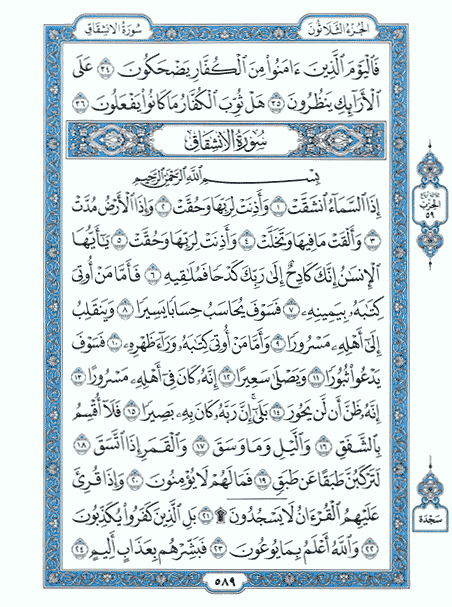 سُورَةُ الانشِقَاقِ
الجُزْءُ الثَّلَاثُونَ
فَالْيَوْمَ الَّذِينَ ءَامَنُوا مِنَ الْكُفَّارِ يَضْحَكُونَ ٣٤ عَلَى
الْأَرَائِكِ يَنظُرُونَ ٣٥ هَلْ ثُوِّبَ الْكُفَّارُ مَا كَانُوا يَفْعَلُونَ ٣٦
سُورَةُ الانشِقَاقِ
بِسْمِ اللَّهِ الرَّحْمَٰنِ الرَّحِيمِ
إِذَا السَّمَاءُ انشَقَّتْ ١ وَأَذِنَتْ لِرَبِّهَا وَحُقَّتْ ٢ وَإِذَا الْأَرْضُ مُدَّتْ
٣ وَأَلْقَتْ مَا فِيهَا وَتَخَلَّتْ ٤ وَأَذِنَتْ لِرَبِّهَا وَحُقَّتْ ٥ يَٰأَيُّهَا
الْإِنسَٰنُ إِنَّكَ كَادِحٌ إِلَىٰ رَبِّكَ كَدْحًا فَمُلَٰقِيهِ ٦ فَأَمَّا مَنْ أُوتِيَ
كِتَٰبَهُۥ بِيَمِينِهِۦ ٧ فَسَوْفَ يُحَاسَبُ حِسَابًا يَسِيرًا ٨ وَيَنقَلِبُ
إِلَىٰ أَهْلِهِۦ مَسْرُورًا ٩ وَأَمَّا مَنْ أُوتِيَ كِتَٰبَهُۥ وَرَاءَ ظَهْرِهِۦ ١٠ فَسَوْفَ
يَدْعُوا ثُبُورًا ١١ وَيَصْلَىٰ سَعِيرًا ١٢ إِنَّهُۥ كَانَ فِي أَهْلِهِۦ مَسْرُورًا ١٣
إِنَّهُۥ ظَنَّ أَن لَّن يَحُورَ ١٤ بَلَىٰ إِنَّ رَبَّهُۥ كَانَ بِهِۦ بَصِيرًا ١٥ فَلَا أُقْسِمُ
بِالشَّفَقِ ١٦ وَالَّيْلِ وَمَا وَسَقَ ١٧ وَالْقَمَرِ إِذَا اتَّسَقَ ١٨
لَتَرْكَبُنَّ طَبَقًا عَن طَبَقٍ ١٩ فَمَا لَهُمْ لَا يُؤْمِنُونَ ٢٠ وَإِذَا قُرِئَ
عَلَيْهِمُ الْقُرْءَانُ لَا يَسْجُدُونَ ۩ ٢١ بَلِ الَّذِينَ كَفَرُوا يُكَذِّبُونَ
٢٢ وَاللَّهُ أَعْلَمُ بِمَا يُوعُونَ ٢٣ فَبَشِّرْهُم بِعَذَابٍ أَلِيمٍ ٢٤
الحِزْبُ
٥٩
سَجْدَة
٥٨٩